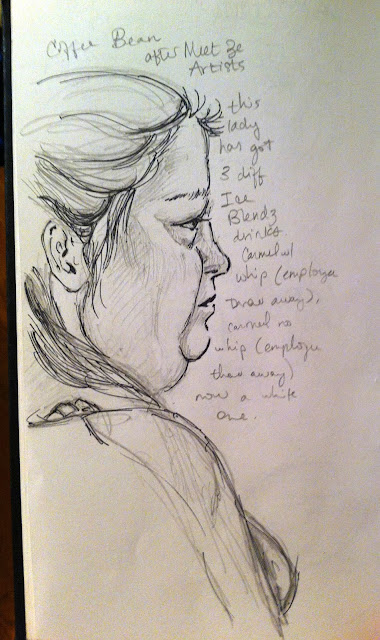 Coffee Bean
after Meet Ze
Artists
this
lady
has got
3 diff
Ice
Blendz
drinks
whip (employee
threw away),
caramel no
whip (employee
threw away)
now a white
one.